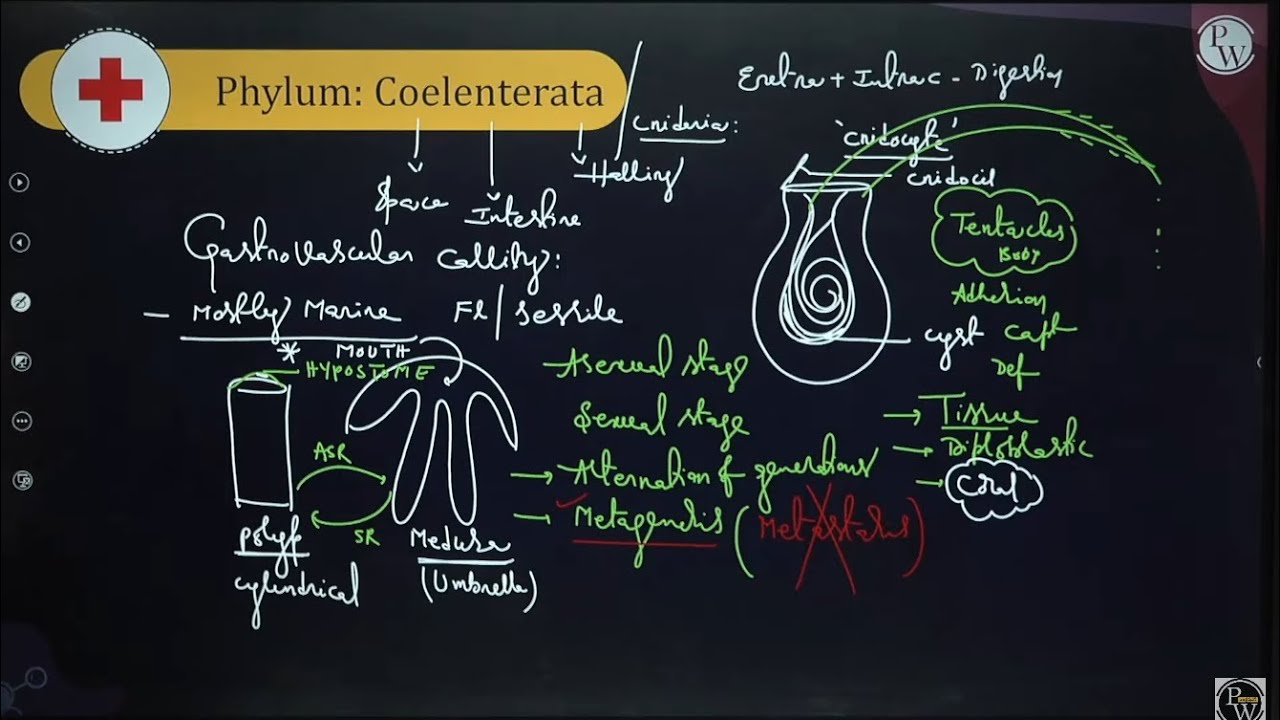 Phylum: Coelenterata
Cnideria:
Space
Intestine
Gastrovascular Cavity:
- Mostly Marine
Fl / Sessile
* MOUTH
HYPOSTOME
ASR
SR
polyp
cylindrical
Medusa
(Umbrella)
Asexual stage
Sexual stage
→ Alternation of generations
→ Metagenesis (Metastasis)
Extra + Intra c - Digestion
'Cnidocyte'
cnidocil
Tentacles
BODY
Adhesion
cyst
Capt
Def
→ Tissue
→ Diploblastic
→ Coral
PW
PW